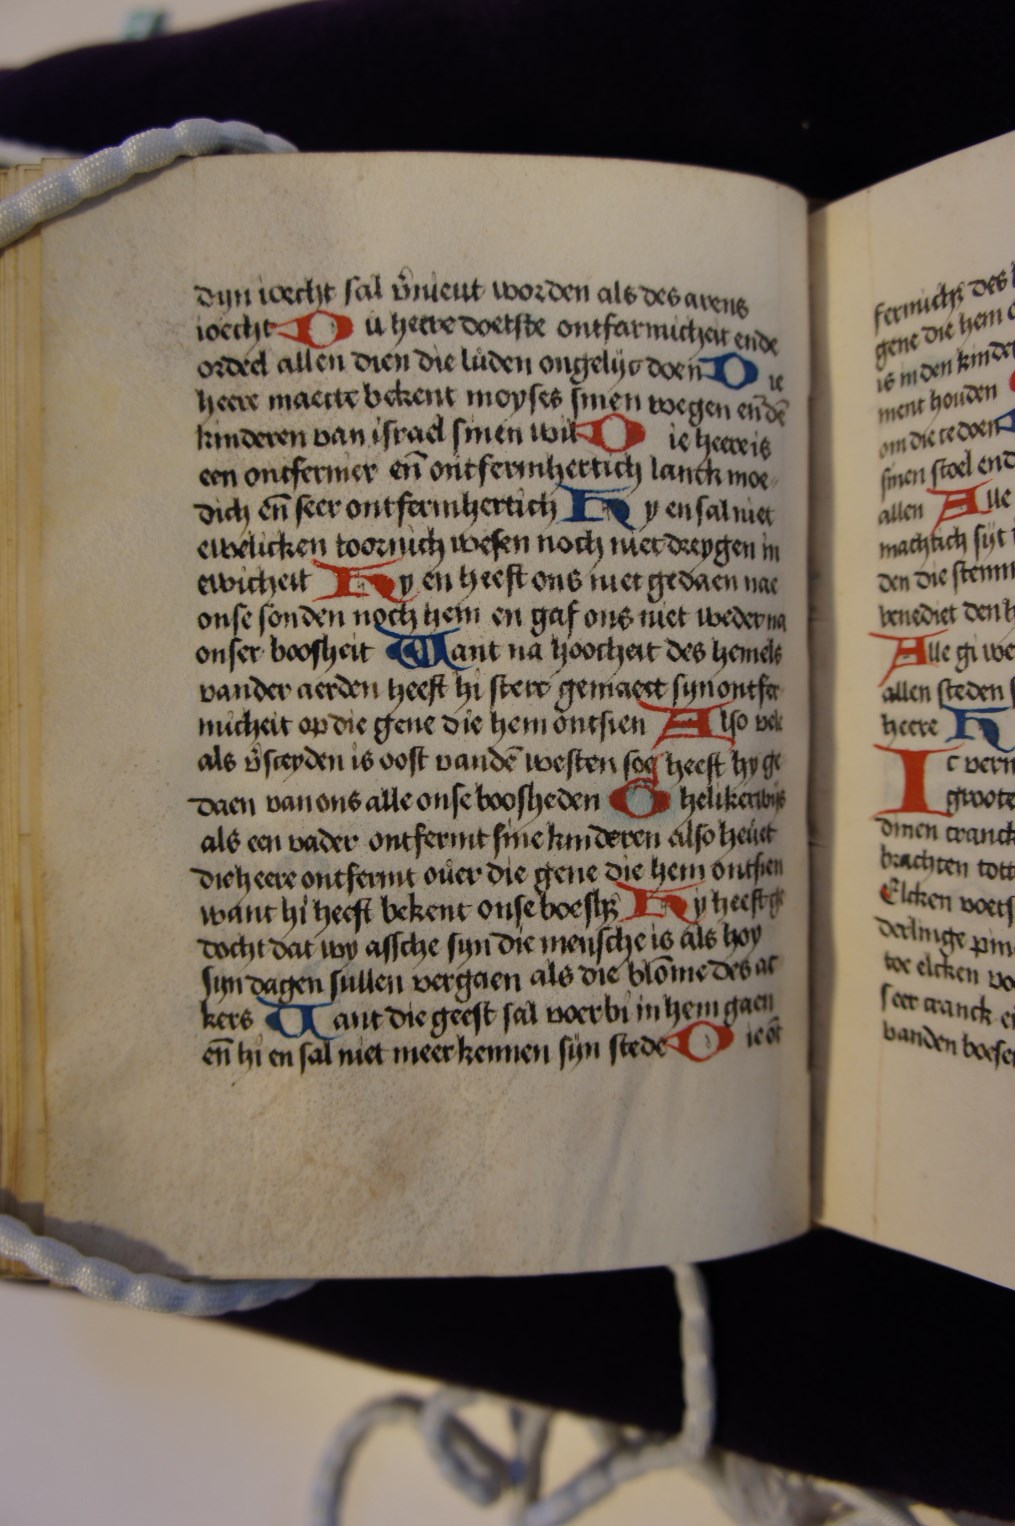 dyn ioecht sal v̄nieut worden als des arens
ioecht D u heere doetste ontfarmicheit ende
ordeel allen dien die luden ongelijc doen D ie
heere maecte bekent moyses sinen wegen en̄ dē
kinderen van israel sinen wil D ie heere is
een ontfermer en̄ ontfermhertich lanck moe
dich en̄ seer ontfermhertich H y en sal niet
ewelicken toornich wesen noch niet dreygen in
ewicheit H y en heeft ons niet gedaen nae
onse sonden noch hem en gaf ons niet weder na
onser boosheit W ant na hoocheit des hemels
vander aerden heeft hi sterc gemaect syn ontfer
micheit op die gene die hem ontsien A lso vele
als v̄sceyden is oost vandē westen soe heeft hy ge
daen van ons alle onse boosheden G helikerwijs
als een vader ontfermt sine kinderen also heuet
die heere ontfermt ouer die gene die hem ontsien
want hi heeft bekent onse boesh; H y heeft ge
docht dat wy assche syn die mensche is als hoy
syn dagen sullen vergaen als die blōme des ac
kers W ant die geest sal voerbi in hem gaen
en̄ hi en sal niet meer kennen sijn stede D ie
fermich; des
gene die hem
is in den kinder
ment houden
om die te doen
sinen stoel end
allen A lle
machtich sijt
den die stemm
benediet den h
A lle gi we
allen steden
heere H
I c vern
groote
dinen cranck
brachten tott
Elcken voets
derlinge
toe elcken vo
seer cranck
vanden boesen